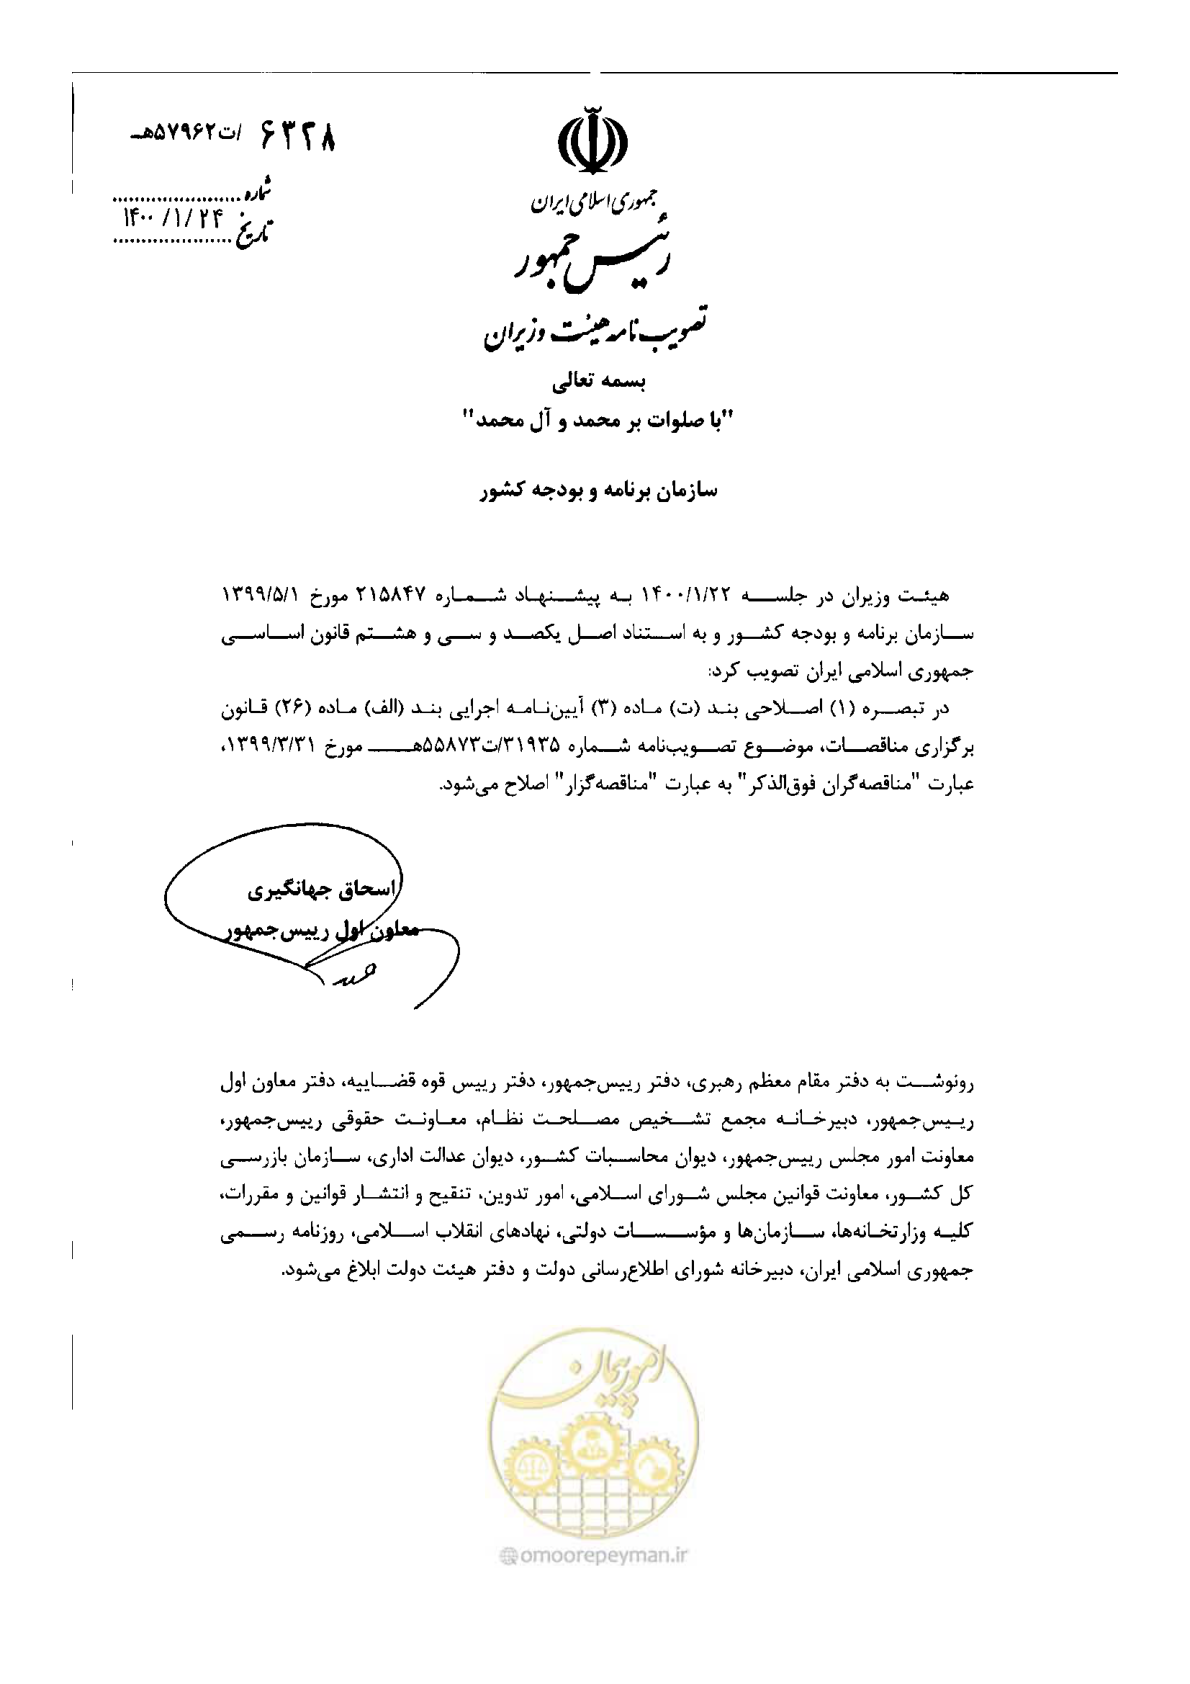 ۶۳۲۸ /ت۵۷۹۶۲هـ
شماره
تاریخ ۱۴۰۰/۱/۲۴
جمهوری اسلامی ایران
رئیس جمهور
تصویب نامه هیئت وزیران
بسمه تعالی
"با صلوات بر محمد و آل محمد"
سازمان برنامه و بودجه کشور
هیئت وزیران در جلسه ۱۴۰۰/۱/۲۲ به پیشنهاد شماره ۲۱۵۸۴۷ مورخ ۱۳۹۹/۵/۱
سازمان برنامه و بودجه کشور و به استناد اصل یکصد و سی و هشتم قانون اساسی
جمهوری اسلامی ایران تصویب کرد:
در تبصره (۱) اصلاحی بند (ت) ماده (۳) آیین‌نامه اجرایی بند (الف) ماده (۲۶) قانون
برگزاری مناقصات، موضوع تصویب‌نامه شماره ۳۱۹۳۵/ت۵۵۸۷۳هـ مورخ ۱۳۹۹/۳/۳۱،
عبارت "مناقصه‌گران فوق‌الذکر" به عبارت "مناقصه‌گزار" اصلاح می‌شود.
اسحاق جهانگیری
معاون اول رییس‌جمهور
رونوشت به دفتر مقام معظم رهبری، دفتر رییس‌جمهور، دفتر رییس قوه قضاییه، دفتر معاون اول
رییس‌جمهور، دبیرخانه مجمع تشخیص مصلحت نظام، معاونت حقوقی رییس‌جمهور،
معاونت امور مجلس رییس‌جمهور، دیوان محاسبات کشور، دیوان عدالت اداری، سازمان بازرسی
کل کشور، معاونت قوانین مجلس شورای اسلامی، امور تدوین، تنقیح و انتشار قوانین و مقررات،
کلیه وزارتخانه‌ها، سازمان‌ها و مؤسسات دولتی، نهادهای انقلاب اسلامی، روزنامه رسمی
جمهوری اسلامی ایران، دبیرخانه شورای اطلاع‌رسانی دولت و دفتر هیئت دولت ابلاغ می‌شود.
امور پیمان
omoorepeyman.ir